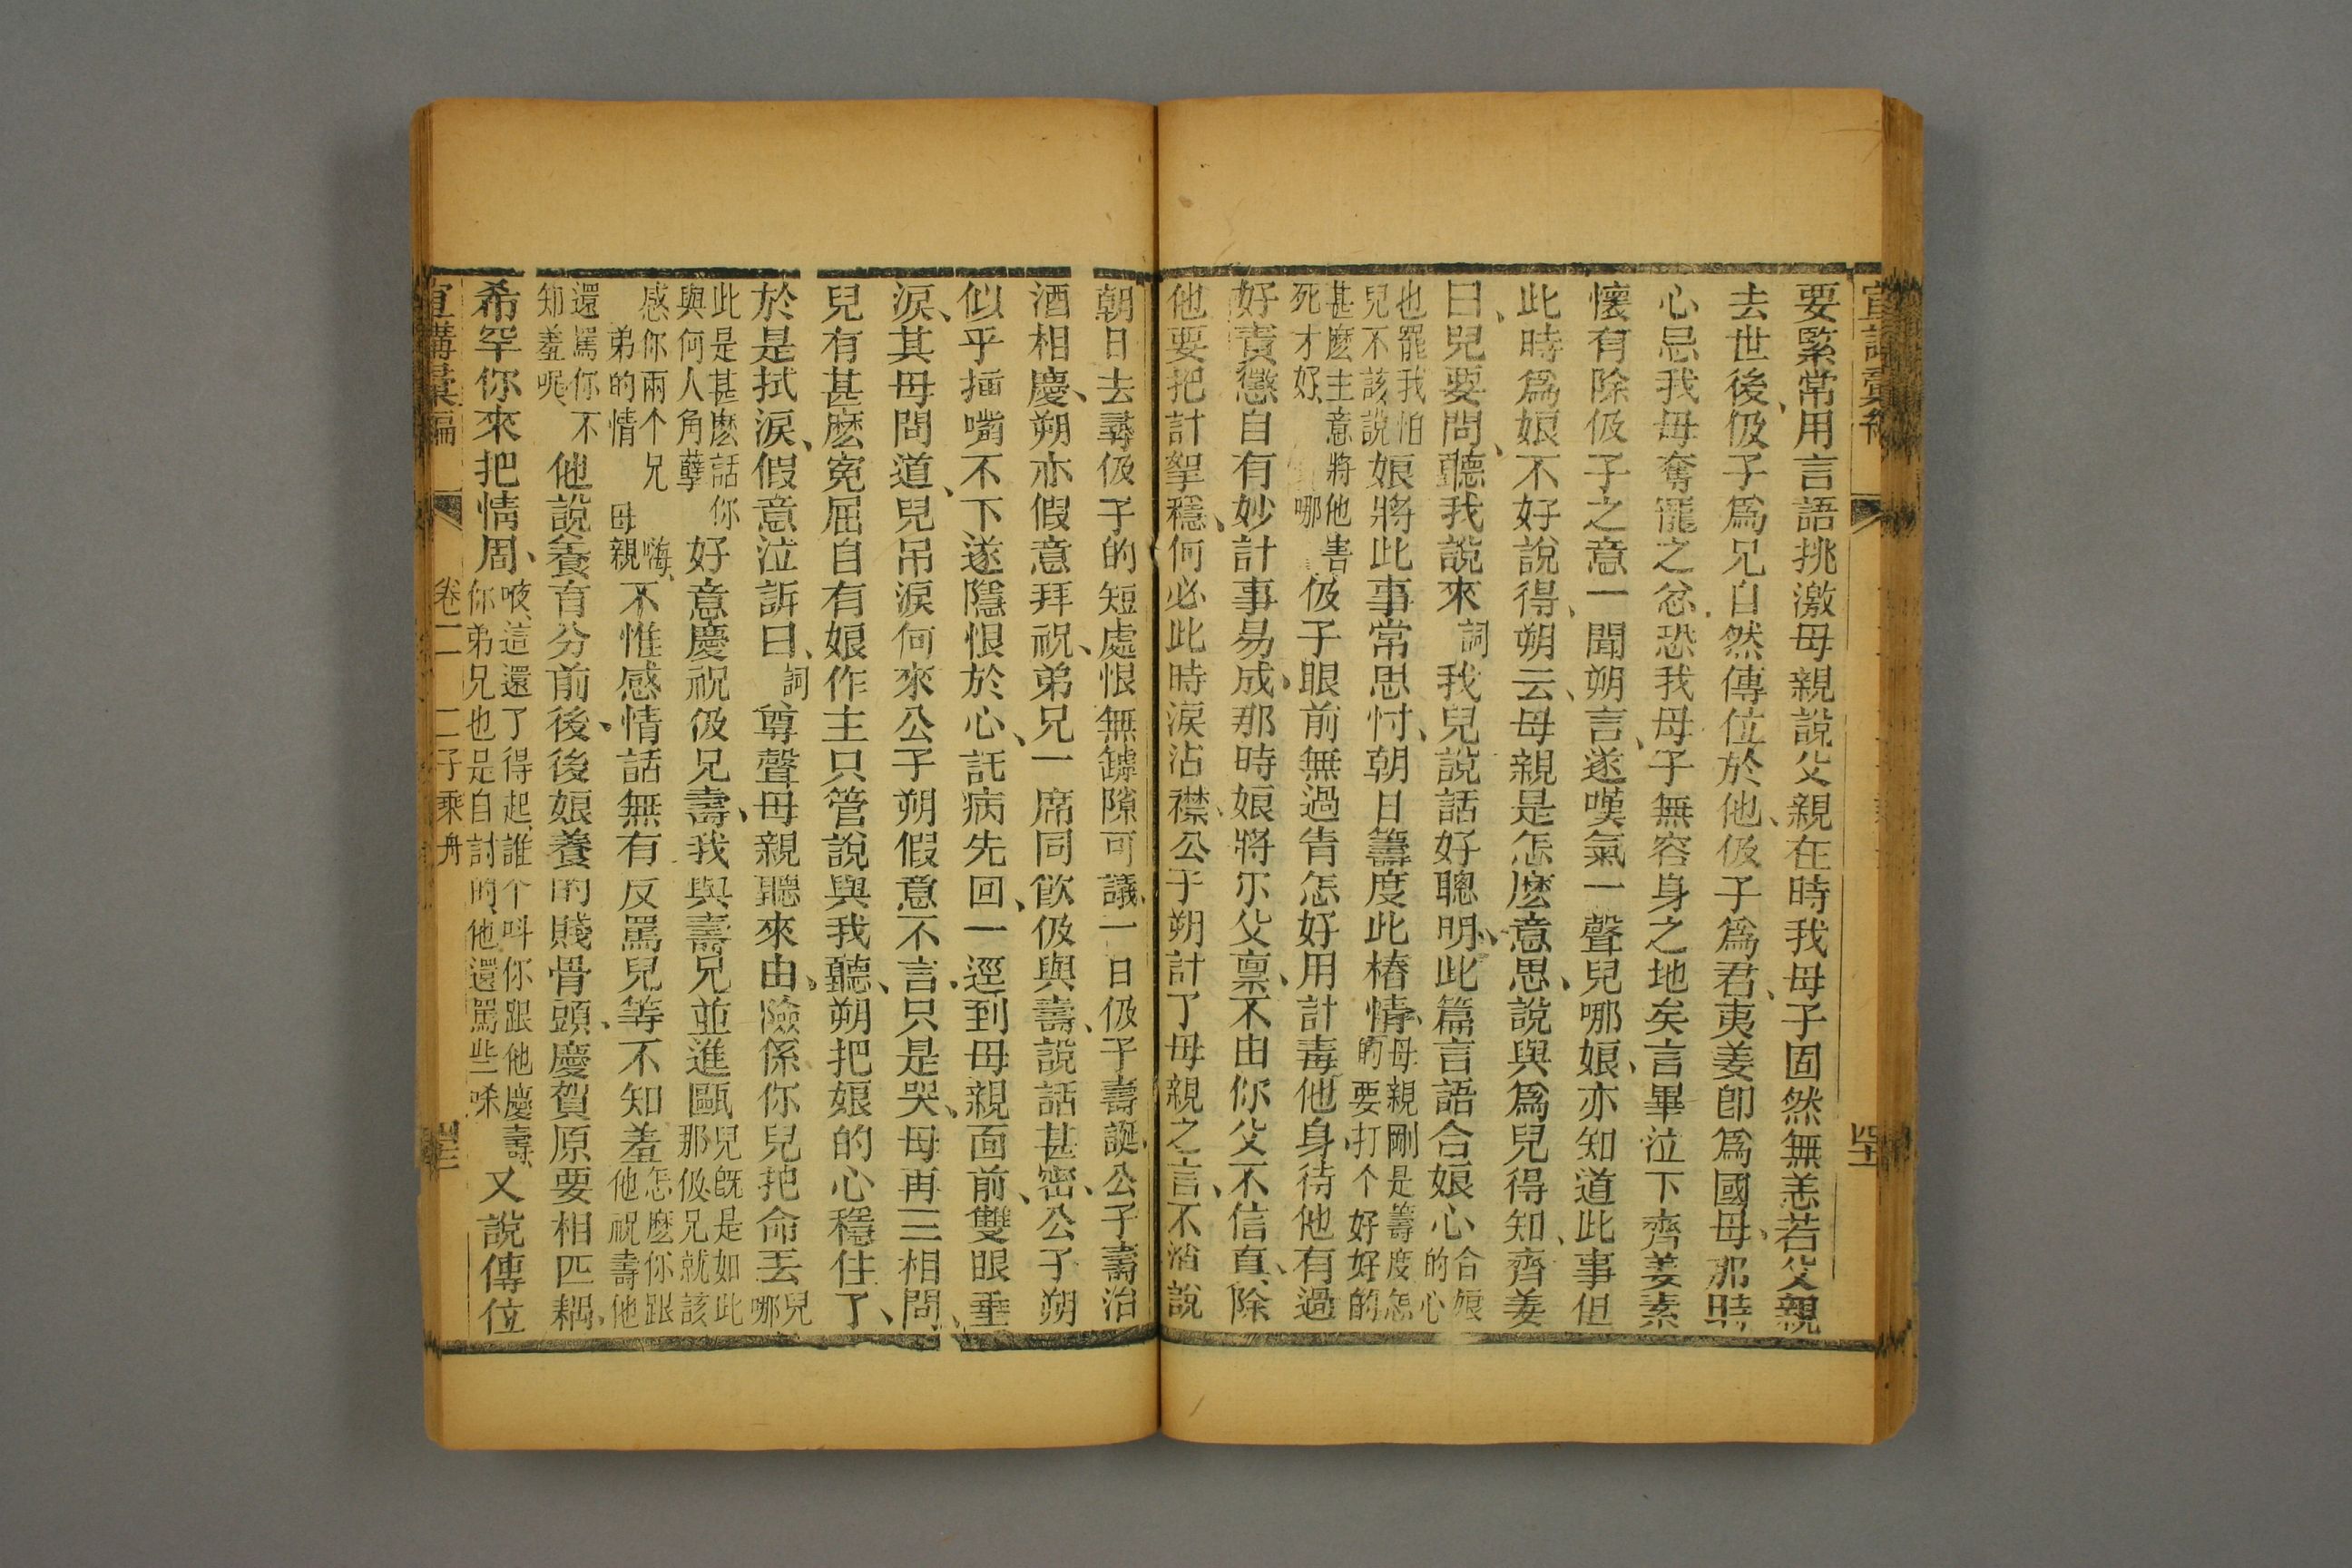 宣講彙編
要緊常用言語挑激母親說父親在時我母子固然無恙若父親
去世後、伋子爲兄自然傳位於他、伋子爲君、夷姜卽爲國母、那時
心忌我母奪寵之忿、恐我母子無容身之地矣言畢泣下齊姜素
懷有除伋子之意一聞朔言、遂嘆氣一聲兒哪娘、亦知道此事但
此時爲娘不好說得、朔云、母親是怎麽意思、說與爲兒得知、齊姜
曰、兒要問、聽我說來 詞 我兒說話好聰明、此篇言語合娘心 合娘的心
也罷我怕兒不該說 娘將此事常思忖、朝日籌度此樁情、母親剛是籌度怎的要打个好好的
甚麽主意將他害死才好、哪 伋子眼前無過眚怎好用計毒他身、待他有過
好責懲自有妙計事易成、那時娘將尔父禀、不由你父不信真、除
他要把計挐穩、何必此時淚沾襟、公子朔計了母親之言、不消說
朝日去尋伋子的短處恨無鏬隙可議、一日伋子壽誕、公子壽治
酒相慶、朔亦假意拜祝、弟兄一席同飲伋與壽、說話甚密、公子朔
似乎插嘴不下遂隱恨於心、託病先回、一逕到母親面前、雙眼垂
淚、其母問道、兒吊淚何來公子朔假意不言、只是哭、母再三相問、
兒有甚麽寃屈自有娘作主只管說與我聽、朔把娘的心穩住了、
於是拭淚、假意泣訴曰、詞 尊聲母親聽來由、險係你兒把命丟 兒哪
此是甚麽話你與何人角孽 好意慶祝伋兄壽、我與壽兄並進甌 兒旣是如此那伋兄就該
感你兩个兄弟的情 嗨、母親 不惟感情話無有反罵兒等不知羞 怎麽你跟他祝壽他
還罵你不知羞呢、 他說養育分前後、後娘養的賤骨頭、慶賀原要相匹耦、
希罕你來把情周、唉、這還了得起、誰个呌你跟他慶壽、你弟兄也是自討的、他還罵些咪 又說傳位
宣講彙編 卷二 二子乘舟